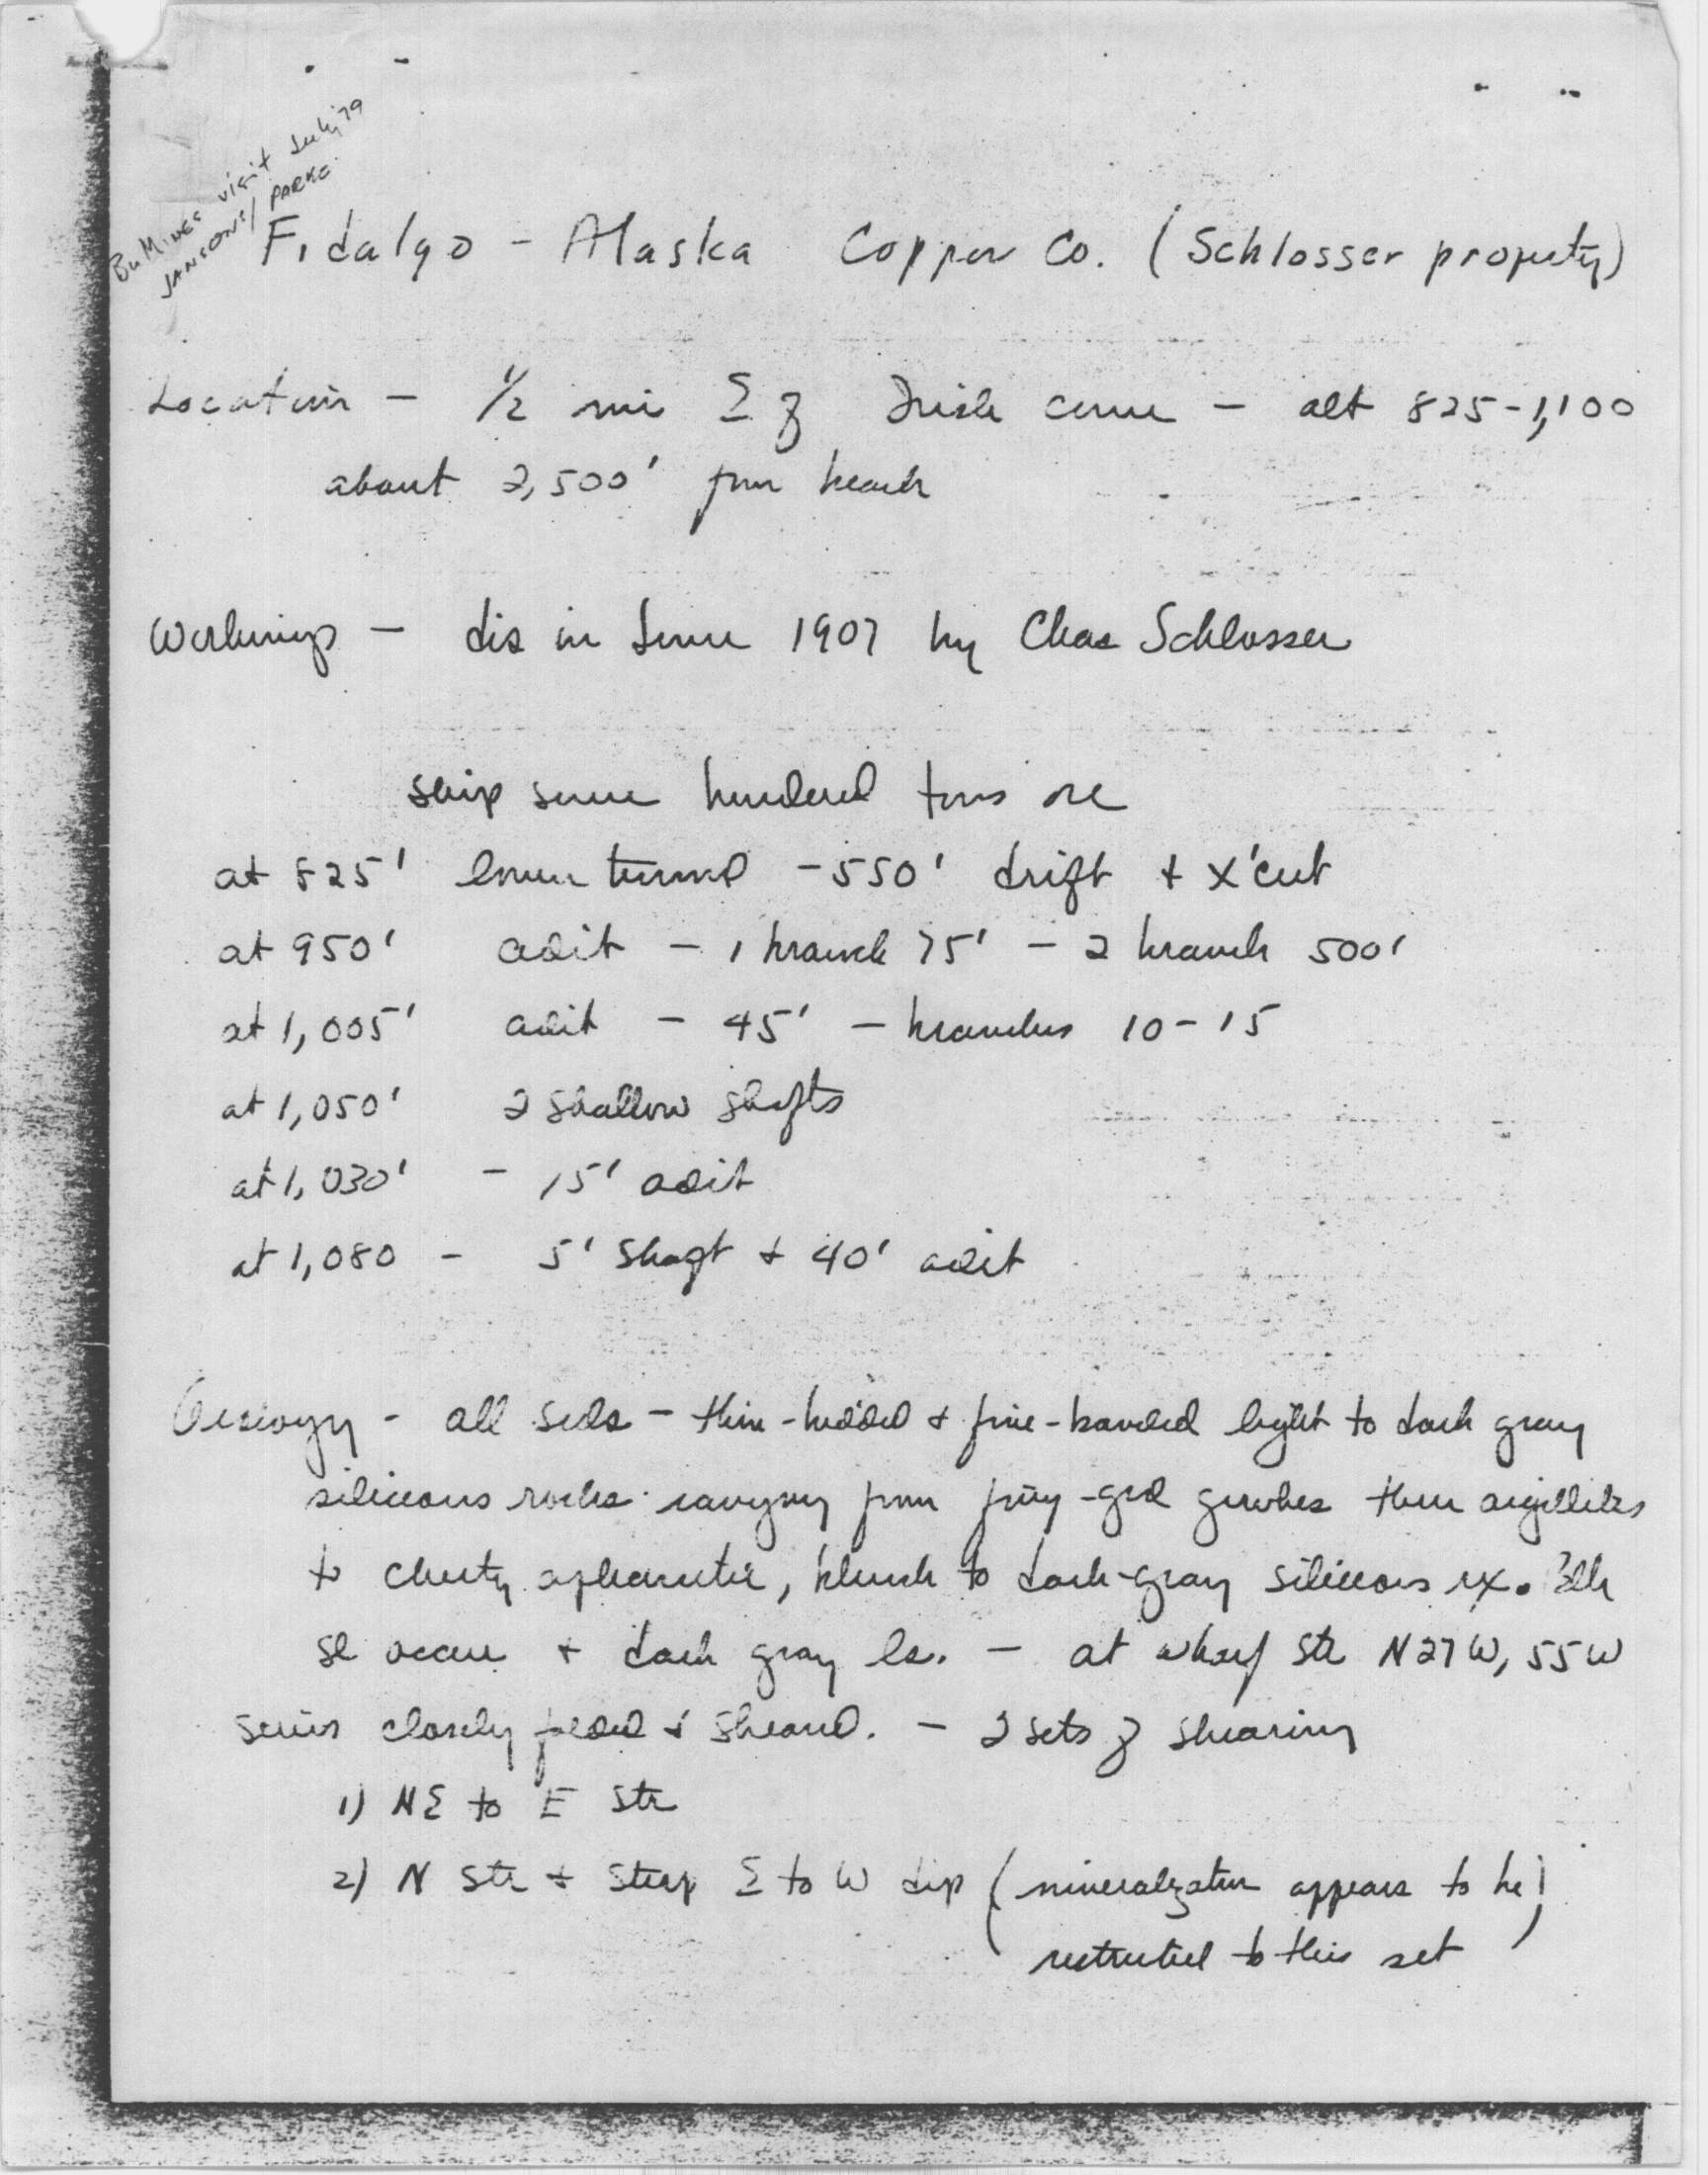 BuMines visit July 79
JANSONS/ PARKE
Fidalgo - Alaska Copper Co. (Schlosser property)
Location - 1/2 mi E of Irish cove - alt 825-1,100
about 2,500' from beach
Workings - dis in June 1907 by Chas Schlosser
ship some hundred tons ore
at 825' lower tunnel - 550' drift + x'cut
at 950' adit - 1 branch 75' - 2 branch 500'
at 1,005' adit - 45' - branches 10-15
at 1,050' 2 shallow shafts
at 1,030' - 15' adit
at 1,080 - 5' shaft + 40' adit
Geology - all seds - thin-bedded + fine-banded light to dark gray
siliceous rocks ranging from fine-grd gwkes thru argillites
to cherty aphanitic, bluish to dark-gray siliceous rx. Blk
sl occur + dark gray ls. - at wharf str N27W, 55W
series closely folded + sheared. - 2 sets of shearing
1) NE to E str
2) N str + steep E to W dip (mineralization appears to be
restricted to this set)